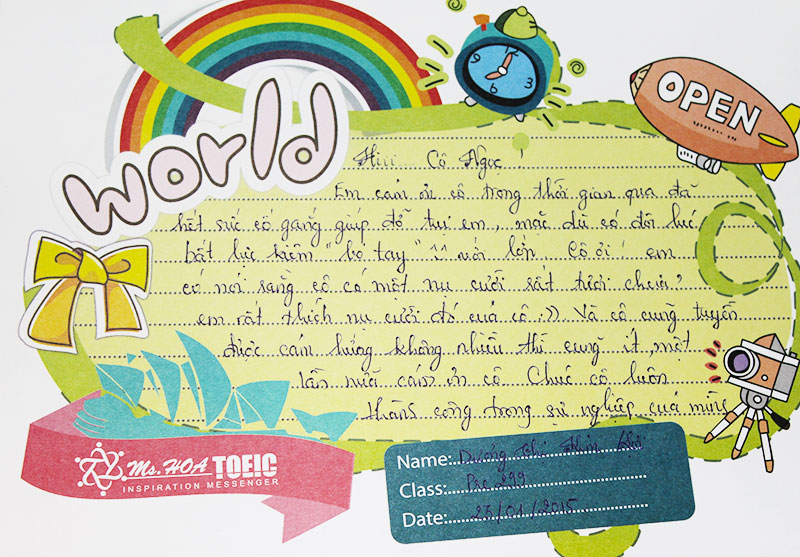 world
9 3 6
OPEN
Hii Cô Ngọc
Em cảm ơn cô trong thời gian qua đã
hết sức cố gắng giúp đỡ tụi em, mặc dù có đôi lúc
bất lực kiêm "bó tay" với lớp. Cô ơi! em
có nói rằng cô có một nụ cười rất tươi chưa?
em rất thích nụ cười đó của cô :)) Và cô cũng truyền
được cảm hứng không nhiều thì cũng ít, một
lần nữa cảm ơn cô Chúc cô luôn
thành công trong sự nghiệp của mình
Ms. HOA TOEIC
INSPIRATION MESSENGER
Name: Dương Thị
Class: Pre 299
Date: 25/01/2015